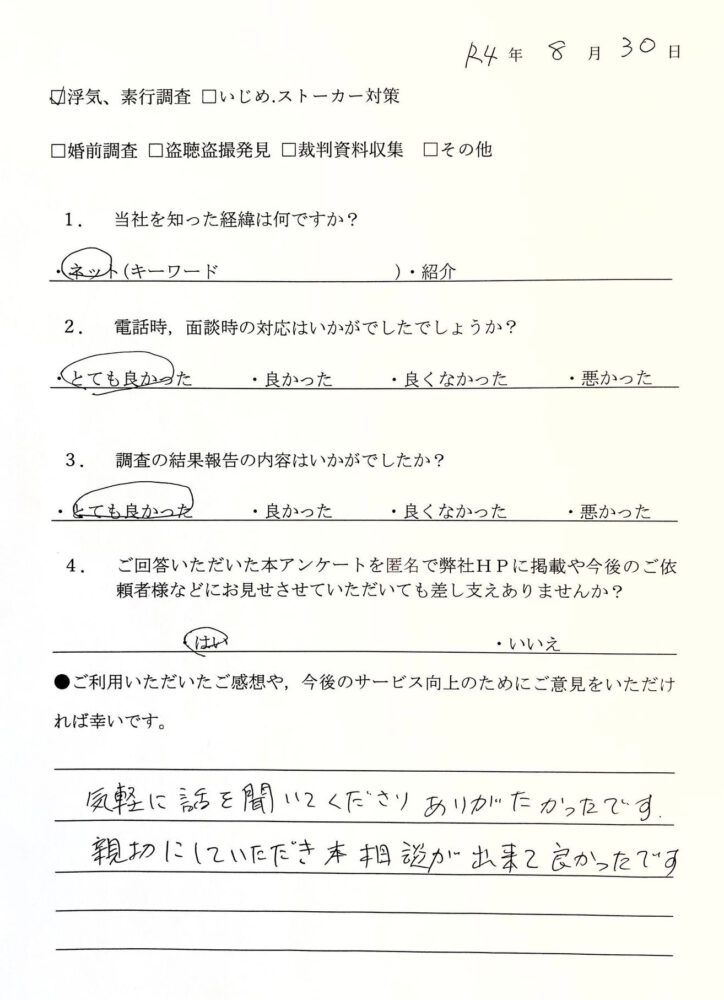 R4年 8月 30日
☑浮気、素行調査 □いじめ.ストーカー対策
□婚前調査 □盗聴盗撮発見 □裁判資料収集 □その他
1. 当社を知った経緯は何ですか？
・ネット(キーワード )・紹介
2. 電話時，面談時の対応はいかがでしたでしょうか？
・とても良かった ・良かった ・良くなかった ・悪かった
3. 調査の結果報告の内容はいかがでしたか？
・とても良かった ・良かった ・良くなかった ・悪かった
4. ご回答いただいた本アンケートを匿名で弊社ＨＰに掲載や今後のご依
頼者様などにお見せさせていただいても差し支えありませんか？
・はい ・いいえ
●ご利用いただいたご感想や，今後のサービス向上のためにご意見をいただけ
れば幸いです。
気軽に話を聞いてくださりありがたかったです.
親切にしていただき本相談が出来て良かったです